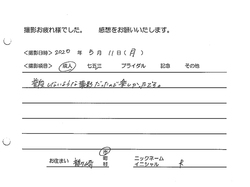 撮影お疲れ様でした。 感想をお願いいたします。
<撮影日時> 2020 年 3 月 11 日 ( 月 )
<撮影病目> 成人 七五三 ブライダル 記念 その他
普段しないような撮影だったので楽しかったです。
お住まい 町 村 ニックネーム イニシャル K